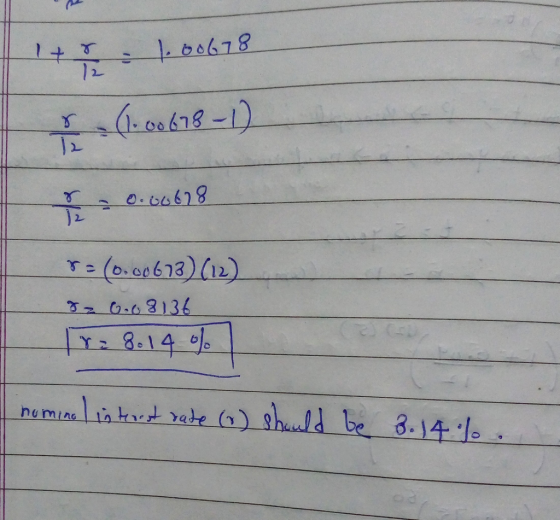 1 + r/12 = 1.00678
r/12 = (1.00678 - 1)
r/12 = 0.00678
r = (0.00678)(12)
r = 0.08136
r = 8.14 %
nominal interest rate (r) should be 8.14 %.